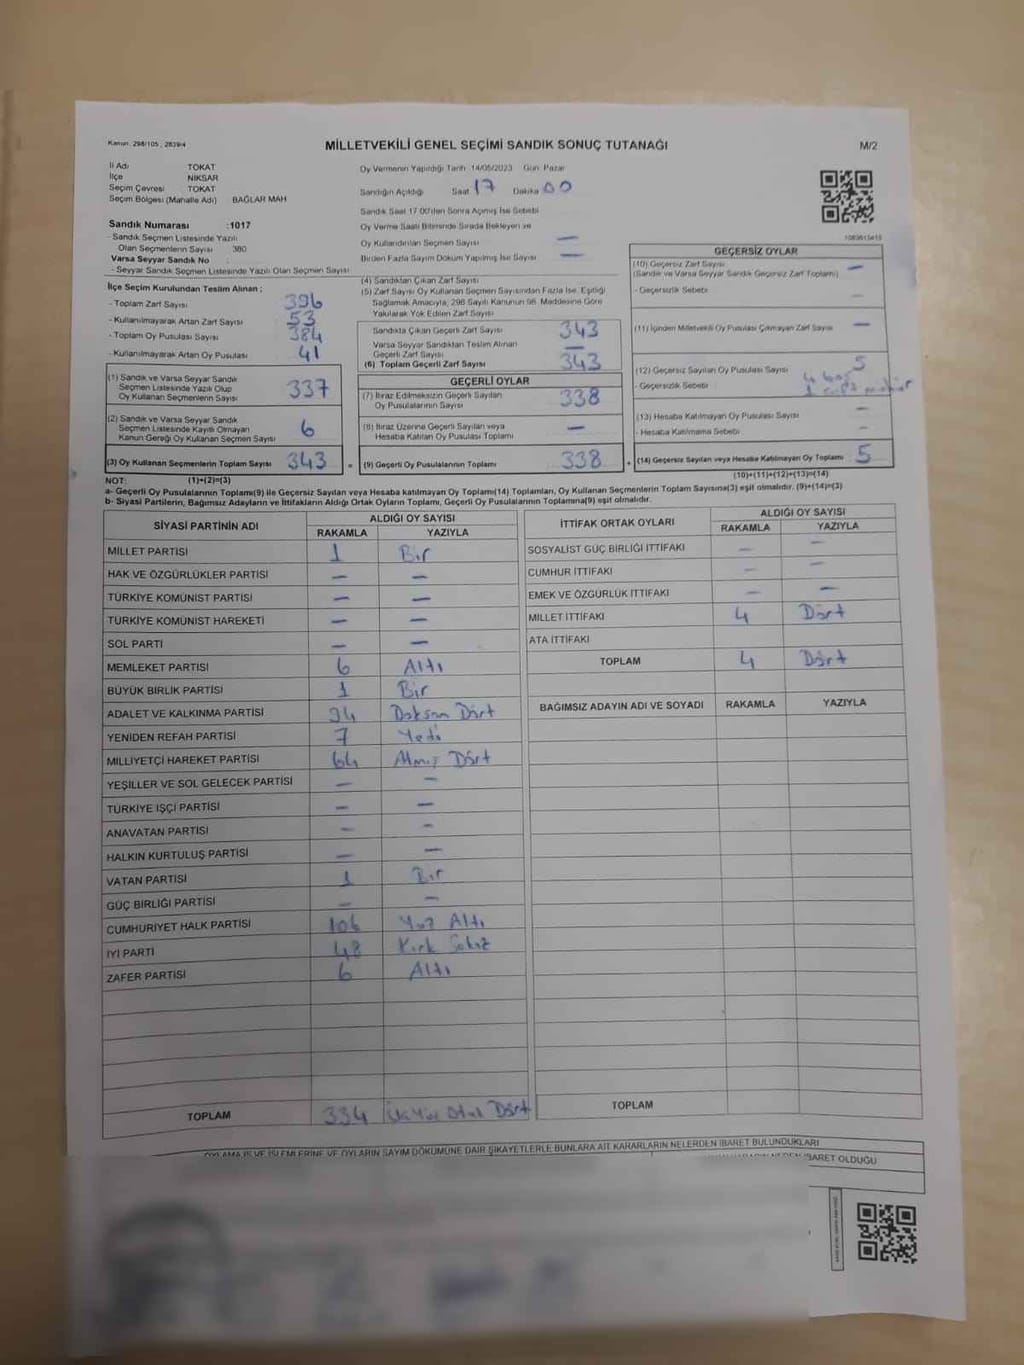 Kanun: 298/105 , 2839/4
MİLLETVEKİLİ GENEL SEÇİMİ SANDIK SONUÇ TUTANAĞI
M/2
İl Adı TOKAT
İlçe NİKSAR
Seçim Çevresi TOKAT
Seçim Bölgesi (Mahalle Adı) BAĞLAR MAH
Sandık Numarası :1017
- Sandık Seçmen Listesinde Yazılı
Olan Seçmenlerin Sayısı 380
Varsa Seyyar Sandık No :
- Seyyar Sandık Seçmen Listesinde Yazılı Olan Seçmen Sayısı
Oy Vermenin Yapıldığı Tarih 14/05/2023 Gün Pazar
Sandığın Açıldığı Saat 17 Dakika 00
Sandık Saat 17:00'den Sonra Açılmış İse Sebebi
Oy Verme Saati Bitiminde Sırada Bekleyen ve
Oy Kullandırılan Seçmen Sayısı —
Birden Fazla Sayım Döküm Yapılmış İse Sayısı —
1083615415
İlçe Seçim Kurulundan Teslim Alınan ;
- Toplam Zarf Sayısı 396
- Kullanılmayarak Artan Zarf Sayısı 53
- Toplam Oy Pusulası Sayısı 384
- Kullanılmayarak Artan Oy Pusulası 41
(1) Sandık ve Varsa Seyyar Sandık
Seçmen Listesinde Yazılı Olup
Oy Kullanan Seçmenlerin Sayısı 337
(2) Sandık ve Varsa Seyyar Sandık
Seçmen Listesinde Kayıtlı Olmayan
Kanun Gereği Oy Kullanan Seçmen Sayısı 6
(3) Oy Kullanan Seçmenlerin Toplam Sayısı 343
(4) Sandıktan Çıkan Zarf Sayısı
(5) Zarf Sayısı Oy Kullanan Seçmen Sayısından Fazla İse, Eşitliği
Sağlamak Amacıyla, 298 Sayılı Kanunun 98. Maddesine Göre
Yakılarak Yok Edilen Zarf Sayısı
Sandıkta Çıkan Geçerli Zarf Sayısı 343
Varsa Seyyar Sandıktan Teslim Alınan
Geçerli Zarf Sayısı —
(6) Toplam Geçerli Zarf Sayısı 343
GEÇERLİ OYLAR
(7) İtiraz Edilmeksizin Geçerli Sayılan
Oy Pusulalarının Sayısı 338
(8) İtiraz Üzerine Geçerli Sayılan veya
Hesaba Katılan Oy Pusulası Toplamı —
= (9) Geçerli Oy Pusulalarının Toplamı 338
GEÇERSİZ OYLAR
(10) Geçersiz Zarf Sayısı —
(Sandık ve Varsa Seyyar Sandık Geçersiz Zarf Toplamı)
- Geçersizlik Sebebi —
(11) İçinden Milletvekili Oy Pusulası Çıkmayan Zarf Sayısı —
(12) Geçersiz Sayılan Oy Pusulası Sayısı 5
- Geçersizlik Sebebi 4 boş
1 mühür
(13) Hesaba Katılmayan Oy Pusulası Sayısı —
- Hesaba Katılmama Sebebi —
+ (14) Geçersiz Sayılan veya Hesaba Katılmayan Oy Toplamı 5
NOT: (1)+(2)=(3) (10)+(11)+(12)+(13)=(14)
a- Geçerli Oy Pusulalarının Toplamı(9) ile Geçersiz Sayılan veya Hesaba katılmayan Oy Toplamı(14) Toplamları, Oy Kullanan Seçmenlerin Toplam Sayısına(3) eşit olmalıdır. (9)+(14)=(3)
b- Siyasi Partilerin, Bağımsız Adayların ve İttifakların Aldığı Ortak Oyların Toplamı, Geçerli Oy Pusulaları Toplamına(9) eşit olmalıdır.
SİYASİ PARTİNİN ADI ALDIĞI OY SAYISI
RAKAMLA YAZIYLA
MİLLET PARTİSİ 1 Bir
HAK VE ÖZGÜRLÜKLER PARTİSİ — —
TÜRKİYE KOMÜNİST PARTİSİ — —
TÜRKİYE KOMÜNİST HAREKETİ — —
SOL PARTİ — —
MEMLEKET PARTİSİ 6 Altı
BÜYÜK BİRLİK PARTİSİ 1 Bir
ADALET VE KALKINMA PARTİSİ 94 Doksan Dört
YENİDEN REFAH PARTİSİ 7 Yedi
MİLLİYETÇİ HAREKET PARTİSİ 64 Atmış Dört
YEŞİLLER VE SOL GELECEK PARTİSİ — —
TÜRKİYE İŞÇİ PARTİSİ — —
ANAVATAN PARTİSİ — —
HALKIN KURTULUŞ PARTİSİ — —
VATAN PARTİSİ 1 Bir
GÜÇ BİRLİĞİ PARTİSİ — —
CUMHURİYET HALK PARTİSİ 106 Yüz Altı
İYİ PARTİ 48 Kırk Sekiz
ZAFER PARTİSİ 6 Altı
TOPLAM 334 Üçyüz Otuz Dört
İTTİFAK ORTAK OYLARI ALDIĞI OY SAYISI
RAKAMLA YAZIYLA
SOSYALİST GÜÇ BİRLİĞİ İTTİFAKI — —
CUMHUR İTTİFAKI — —
EMEK VE ÖZGÜRLÜK İTTİFAKI — —
MİLLET İTTİFAKI 4 Dört
ATA İTTİFAKI
TOPLAM 4 Dört
BAĞIMSIZ ADAYIN ADI VE SOYADI RAKAMLA YAZIYLA
TOPLAM
OYLAMA İŞ VE İŞLEMLERİNE VE OYLARIN SAYIM DÖKÜMÜNE DAİR ŞİKAYETLERLE BUNLARA AİT KARARLARIN NELERDEN İBARET BULUNDUKLARI
İBARET OLDUĞU